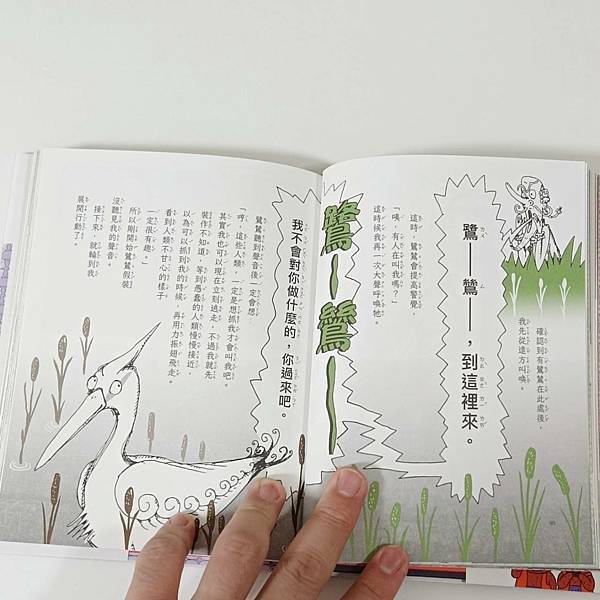 確認到有鷺鷥在此處後，
我先從遠方叫喚。
鷺——鷥——，到這裡來。
這時，鷺鷥會提高警覺，
「咦，有人在叫我嗎？」
這時候我再一次大聲呼喚牠。
鷺—鷥—
我不會對你做什麼的，你過來吧。
鷺鷥聽到聲音後一定會想，
「哼，這些人類，一定是想抓我才會叫我吧。
其實我也可以現在立刻逃走，不過我就先
裝作不知道，等到愚蠢的人類慢慢接近，
以為可以抓到我的時候，再用力振翅飛走。
看到人類不甘心的樣子
一定很有趣。」
所以剛開始鷺鷥假裝
沒聽見我的聲音。
接下來，就輪到我
展開行動了。